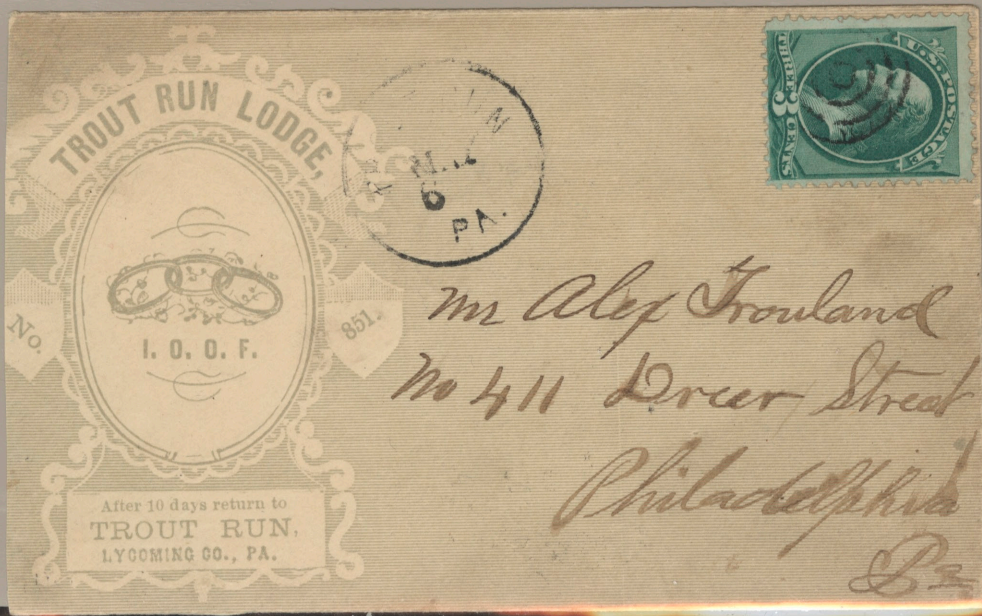 TROUT RUN LODGE,
No. 851.
I. O. O. F.
After 10 days return to
TROUT RUN,
LYCOMING CO., PA.
RUN
MAR
6
PA.
U.S. POSTAGE
THREE 3 CENTS
Mr Alex Trouland
No 411 Dreer Street
Philadelphia
Pa